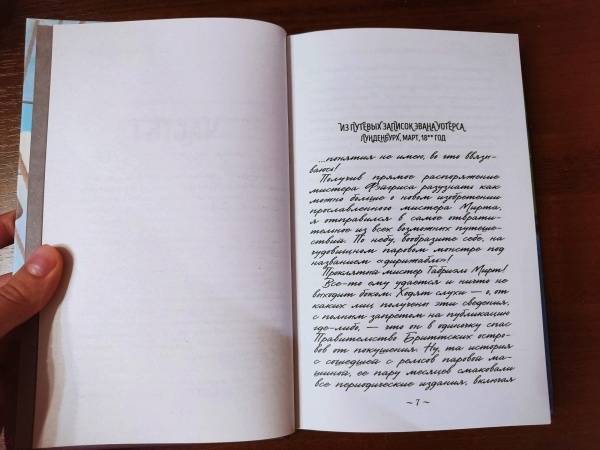 ИЗ ПУТЕВЫХ ЗАПИСОК ЭВАНА УОТЕРСА,
ЛУНДЕНБУРХ, МАРТ, 18** ГОД
...понятия не имею, во что ввязы-
ваюсь!
Получив прямое распоряжение
мистера Фэгриса разузнать как
можно больше о новом изобретении
прославленного мистера Мирта,
я отправился в самое отврати-
тельное из всех возможных путеше-
ствий. По небу, вообразите себе, на
чудовищном паровом монстре под
названием «дирижабль»!
Проклятый мистер Габриэль Мирт!
Все-то ему удается и ничто не
выходит боком. Ходят слухи — о, от
каких лиц получены эти сведения,
с полным запретом на публикацию
где-либо, — что он в одиночку спас
Правительство Бриттских остро-
вов от покушения. Ну, та история
с сошедшей с рельсов паровой ма-
шиной, ее пару месяцев смаковали
все периодические издания, включая
~ 7 ~